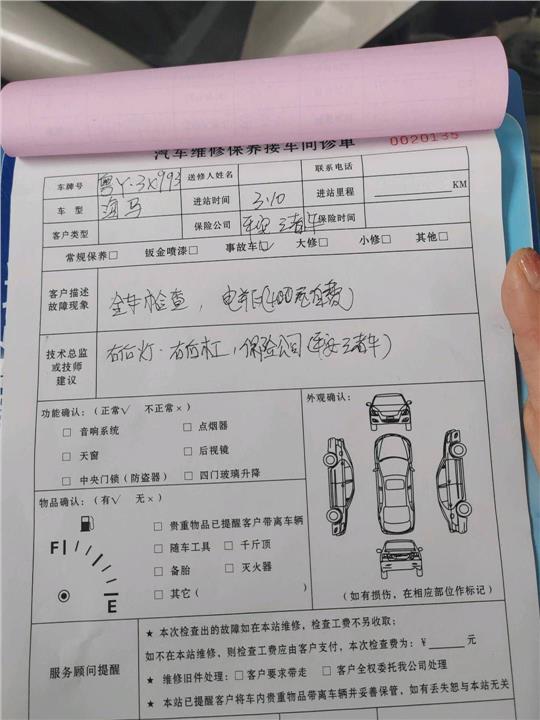 汽车维修保养接车问诊单
0020135
车牌号 粤Y·3X993 送修人姓名 联系电话
车 型 海马 进站时间 3.10 进站里程 KM
客户类型 保险公司 平安 三者车 保险时间
常规保养□ 钣金喷漆□ 事故车□ 大修□ 小修□ 其他□
客户描述
故障现象
全车检查,
(400元自费)
技术总监
或技师
建议
右后灯.右后杠,保险公司(平安三者车)
功能确认:(正常√ 不正常×)
□ 音响系统 □ 点烟器
□ 天窗 □ 后视镜
□ 中央门锁(防盗器) □ 四门玻璃升降
外观确认:
(如有损伤,在相应部位作标记)
物品确认:(有√ 无×)
F
E
□ 贵重物品已提醒客户带离车辆
□ 随车工具 □ 千斤顶
□ 备胎 □ 灭火器
□ 其它( )
服务顾问提醒
★ 本次检查出的故障如在本站维修,检查工费不另收取;
如不在本站维修,则检查工费应由客户支付,本次检查费为:¥ 元
★ 维修旧件处理:□客户要求带走 □ 客户全权委托我公司处理
★ 本站已提醒客户将车内贵重物品带离车辆并妥善保管,如有丢失恕与本站无关